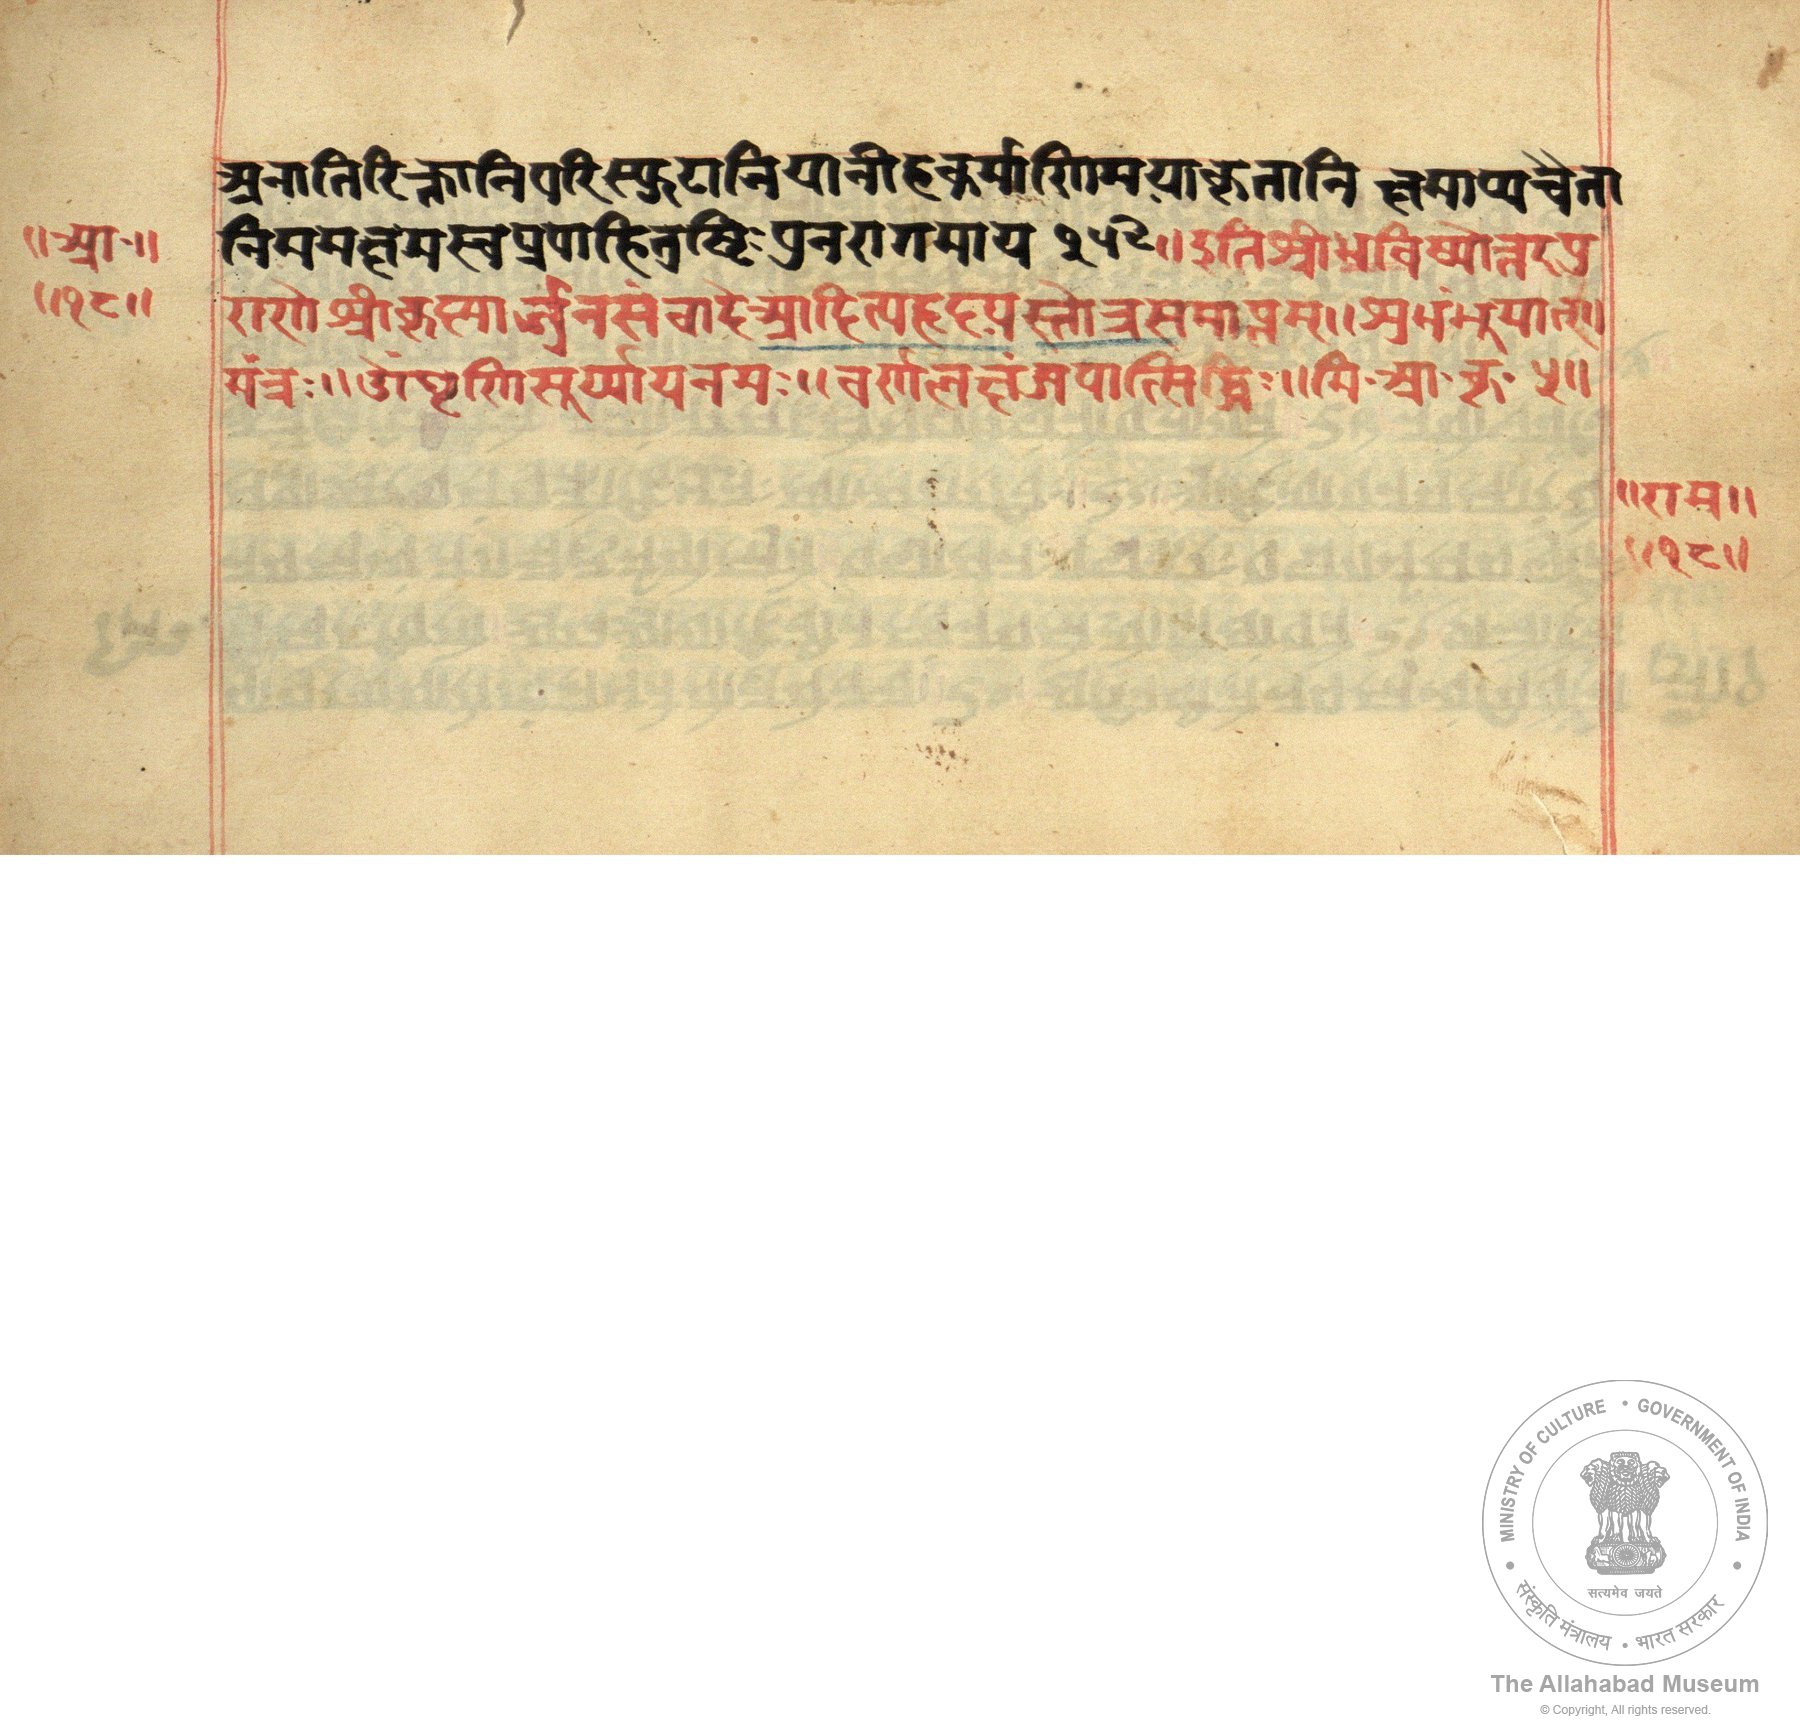 अनातिरिक्तानिपरिस्फुटानियानीहकर्माणिमयाकृतानि क्षमाप्यचैता
॥आ॰॥
निममक्षमस्वप्रपाहितुष्टिःपुनरागमाय १५२॥इतिश्रीभविष्योत्तरपु
॥१८॥
राणेश्रीकृष्णार्ज्जुनसंवादेआदित्यहृदयस्तोत्रसमाप्तम्॥शुभंभूयात्॥
मंत्रः॥ॐघृणिसूर्य्यायनमः॥वर्णलक्षंजपात्सिद्धिः॥मि॰आ॰कृ॰५॥
॥राम॥
॥१८॥
MINISTRY OF CULTURE • GOVERNMENT OF INDIA
सत्यमेव जयते
संस्कृति मंत्रालय • भारत सरकार
The Allahabad Museum
© Copyright, All rights reserved.